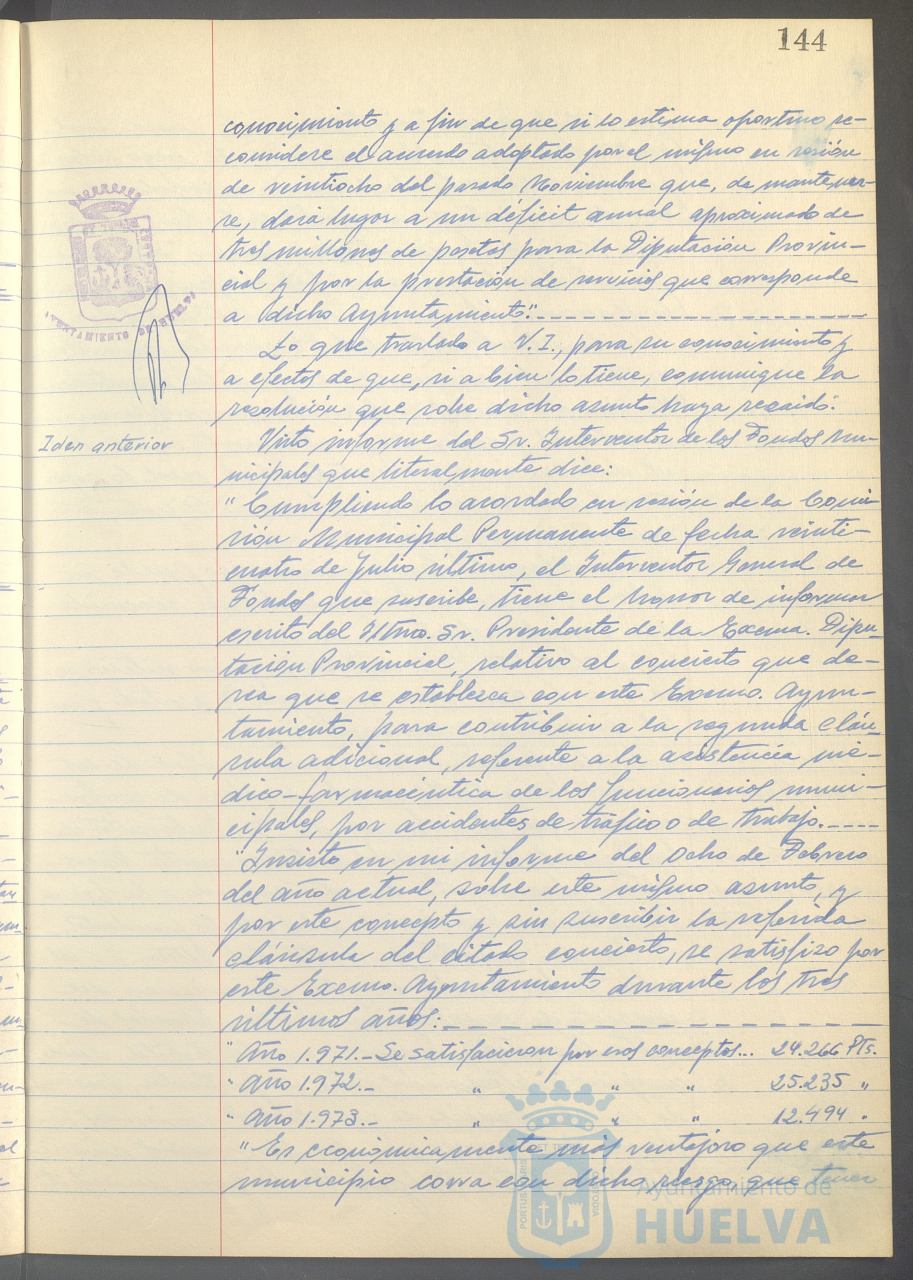 144
conocimiento y a fin de que si lo estima oportuno re-
considere el acuerdo adoptado por el mismo en sesión
de veintiocho del pasado Noviembre que, de mantener-
se, daria lugar a un déficit anual aproximado de
tres millones de pesetas para la Diputación Provin-
cial y por la prestación de servicios que corresponde
a dicho Ayuntamiento".-----
Lo que traslado a V.I., para su conocimiento y
a efectos de que, si a bien lo tiene, comunique la
resolución que sobre dicho asunto haya recaído.
Iden anterior
Visto informe del Sr. Interventor de los Fondos Mu-
nicipales que literalmente dice:
"Cumpliendo lo acordado en sesión de la Comi-
sión Municipal Permanente de fecha veinti-
cuatro de Julio último, el Interventor General de
Fondos que suscribe, tiene el honor de informar
escrito del Iltmo. Sr. Presidente de la Excma. Dipu-
tación Provincial, relativo al concierto que de-
sea que se establezca con este Excmo. Ayun-
tamiento, para contribuir a la segunda cláu-
sula adicional, referente a la asistencia mé-
dico-farmacéutica de los funcionarios muni-
cipales, por accidentes de tráfico o de trabajo.----
"Insisto en mi informe del ocho de Febrero
del año actual, sobre este mismo asunto, y
por este concepto y sin suscribir la referida
cláusula del citado concierto, se satisfizo por
este Excmo. Ayuntamiento durante los tres
últimos años:-----
"Año 1.971.- Se satisfacieron por esos conceptos... 24.266 Pts.
"Año 1.972.- " " " 25.235 "
"Año 1.973.- " " " 12.494 "
"Es económicamente más ventajoso que este
municipio corra con dicho riesgo, que tener
AYUNTAMIENTO DE HUELVA
PORTUS MARIS ET TERRAE CUSTODIA
Ayuntamiento de
HUELVA